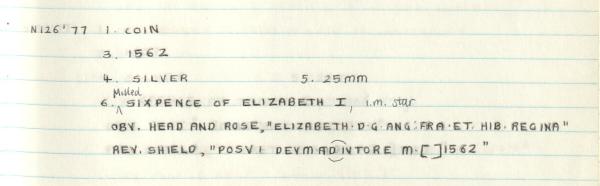 N126'77 1. COIN
3. 1562
4. SILVER 5. 25mm
6. Milled SIXPENCE OF ELIZABETH I, i.m. star
OBV. HEAD AND ROSE, "ELIZABETH·D·G·ANG:FRA·ET·HIB·REGINA"
REV. SHIELD, "POSVI DEVM ADIVTORE M·[ ]1562"